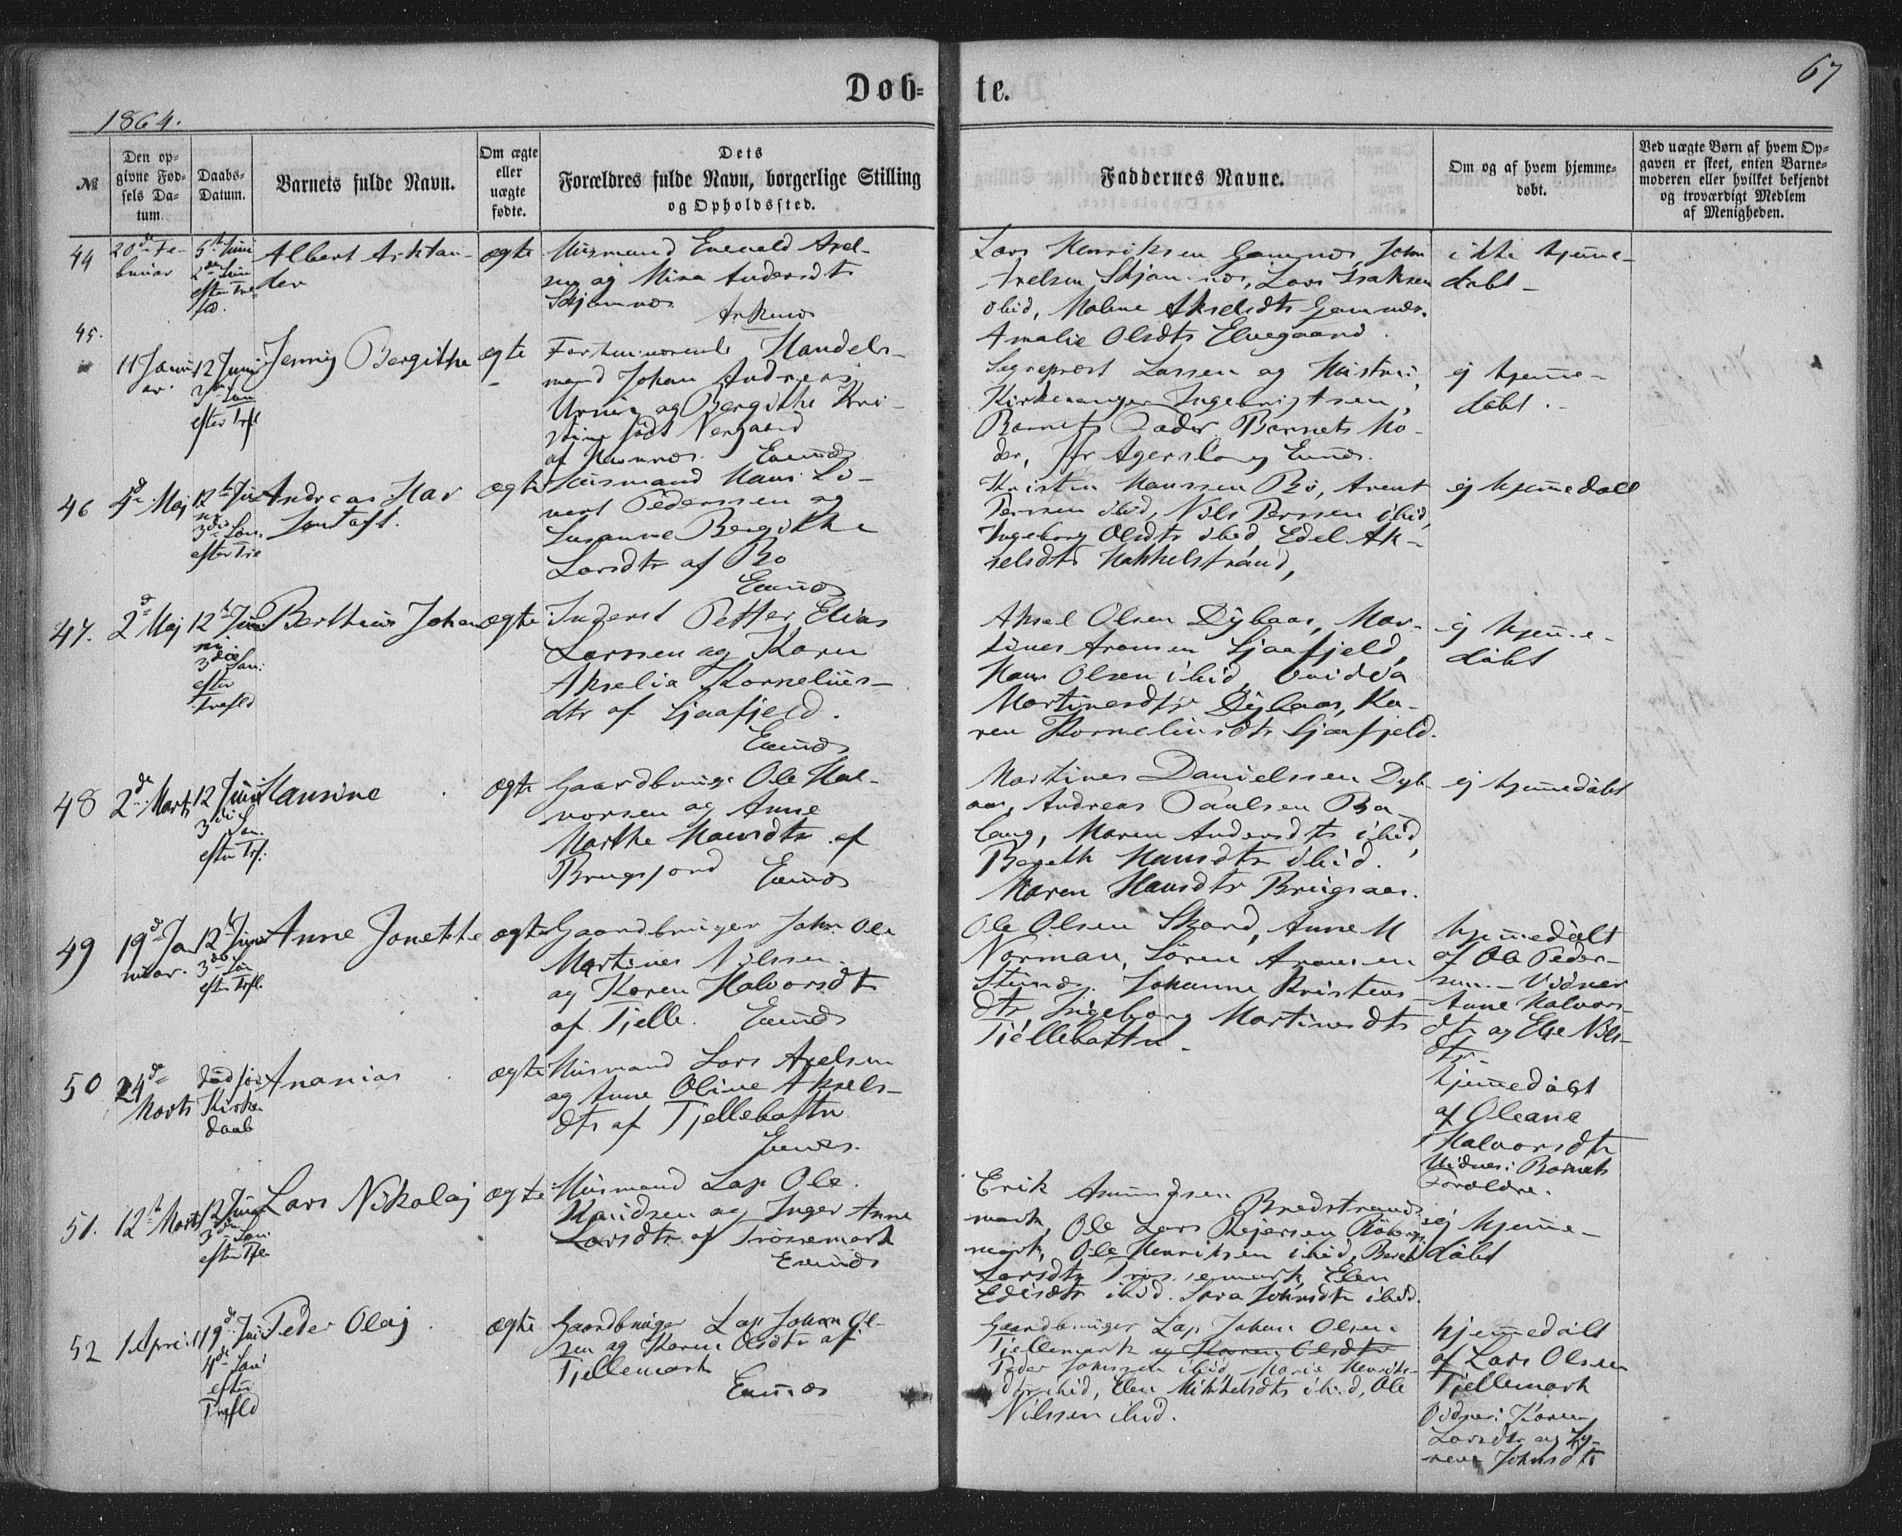 67
Døb-te.
1864.
№
Den op-
givne Fød-
sels Da-
tum.
Daabs-
Datum.
Barnets fulde Navn.
Om ægte
eller
uægte
fødte.
Dets
Forældres fulde Navn, borgerlige Stilling
og Opholdssted.
Faddernes Navne.
Om og af hvem hjemme-
døbt.
Ved uægte Børn af hvem Op-
gaven er skeet, enten Barne-
moderen eller hvilket bekjendt
og troværdigt Medlem
af Menigheden.
44
20de Fe-
bruar
5te Juni
2den Søn
efter Tre-
fld.
Albert
der
ægte
Husmand Edevald Axel-
sen og Mina Andersdtr
Lars Henriksen Gamnæs, John
Axelsen, Lars Isaksen
ibid, Malene Akselsdtr Gamnæs.
Amalie Olsdtr Elvegaard.
ikke hjemme-
døbt -
45.
11 Janu
ar.
12 Juni
3die Søn
efter Trfl
Jenny Bergithe
ægte
Forhenværende Handels-
mand Johan Andreas
og Bergithe Kri-
stine født Norgaard
Evenæs
Sogneprest Lassen og Hustru,
Kirkesanger Ingebrigtsen,
Barnets Fader, Barnets Mo-
der, Evenæs.
ej hjemme-
døbt.
46
4de Maj
12te Juni
3die Søn.
efter Tre
Andreas Hav
ægte
Husmand Hans
Pederssen og
Susanne Bergithe
Larsdtr af Bø
Evenæs
Kristen Hanssen Bø, Arent
Perssen ibid, Nils Perssen ibid,
Ingeborg Olsdtr ibid, Edel Ak-
selsdtr
ej hjemmedøbt
47.
2de Maj
12te Juni
3die Søn.
efter
Trefld
Berthius Johan
ægte
Inderst Petter Elias
Larssen og Karen
Akselia Kornelius-
dtr af Sjaafjeld.
Evenæs
Aksel Olsen Dybaas, Mar-
tines Aronsen Sjaafjeld,
Hans Olsen ibid,
Martinesdtr Dybaas, Ka-
ren Korneliusdtr Sjaafjeld.
ej hjemme-
døbt
48
2de Marts
12 Juni
3die Søn.
efter Trf.
Hansine
ægte
Gaardbruger Ole Hal-
vorsen og Anne
Marthe Hansdtr af
Evenæs
Martines Danielssen Dyb-
aas, Andreas Paulsen Ba-
lang, Maren Andersdtr ibid,
Hansdtr ibid.
Maren Hansdtr
ej hjemmedøbt
49
19de Ja
nuar.
12te Juni
3die Søn
efter Trfl.
Anne Jonette
ægte
Gaardbruger John Ole
Martines Nilssen
og Karen Halvorsdtr
af Tjelle. Evenæs
Ole Olsen Skard, Anne M
Norman, Søren Aronsen
Johanne Kristens
dtr, Ingeborg Martinesdtr
Tjellebotten.
hjemmedøbt
af Ole Peder-
sen. - Vidner
Anne Halvors
dtr og Else Nils-
dtr.
50
24de
Marts
død før
Kirke-
daab
Ananias
ægte
Husmand Lars Axelsen
og Anne Oline Aksels-
dtr af Tjellebotten
Evenæs.
hjemmedøbt
af Oleane
Halvorsdtr
Vidner: Barnets
Forældre.
51.
12te Marts
12 Juni
3die Søn.
efter Tfl.
Lars Nikolaj
ægte
Husmand Lap Ole
Knudsen og Inger Anne
Larsdtr af Trøssemark
Evenæs
Erik Amundsen Bredstrand
mark, Ole Lars
mark, Ole Henriksen ibid, Beret
Larsdtr Trøssemark, Elen
ibid. Sara Johnsdtr ibid.
ej hjemme-
døbt
52
1 April
19de Juni
4de Søn
efter
Trefld
Peder Olaj
ægte
Gaardbruger Lap Johan Ol-
sen og Karen Olsdtr af
Tjellemark
Evenæs
Gaardbruger Lap Johan Olsen
Tjellemark og Karen Olsdtr
Peder Johnsen ibid, Marie Henriks-
datr ibid, Elen Mikkelsdtr ibid, Ole
Nilssen ibid.
hjemmedøbt
af Lars Olsen
Tjellemark
Vidner: Karen
Larsdtr og
Johnsdtr